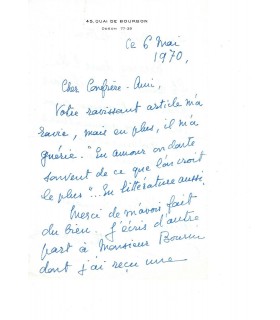 45, QUAI DE BOURBON
ODÉON 77-36
ce 6 Mai
1970,
Cher Confrère-Ami,
Votre ravissant article m'a
ravie, mais en plus, il m'a
guérie. "En amour on doute
souvent de ce que l'on croit
le plus"... En littérature aussi.
Merci de m'avoir fait
du bien. J'écris d'autre
part à Monsieur
dont j'ai reçu une